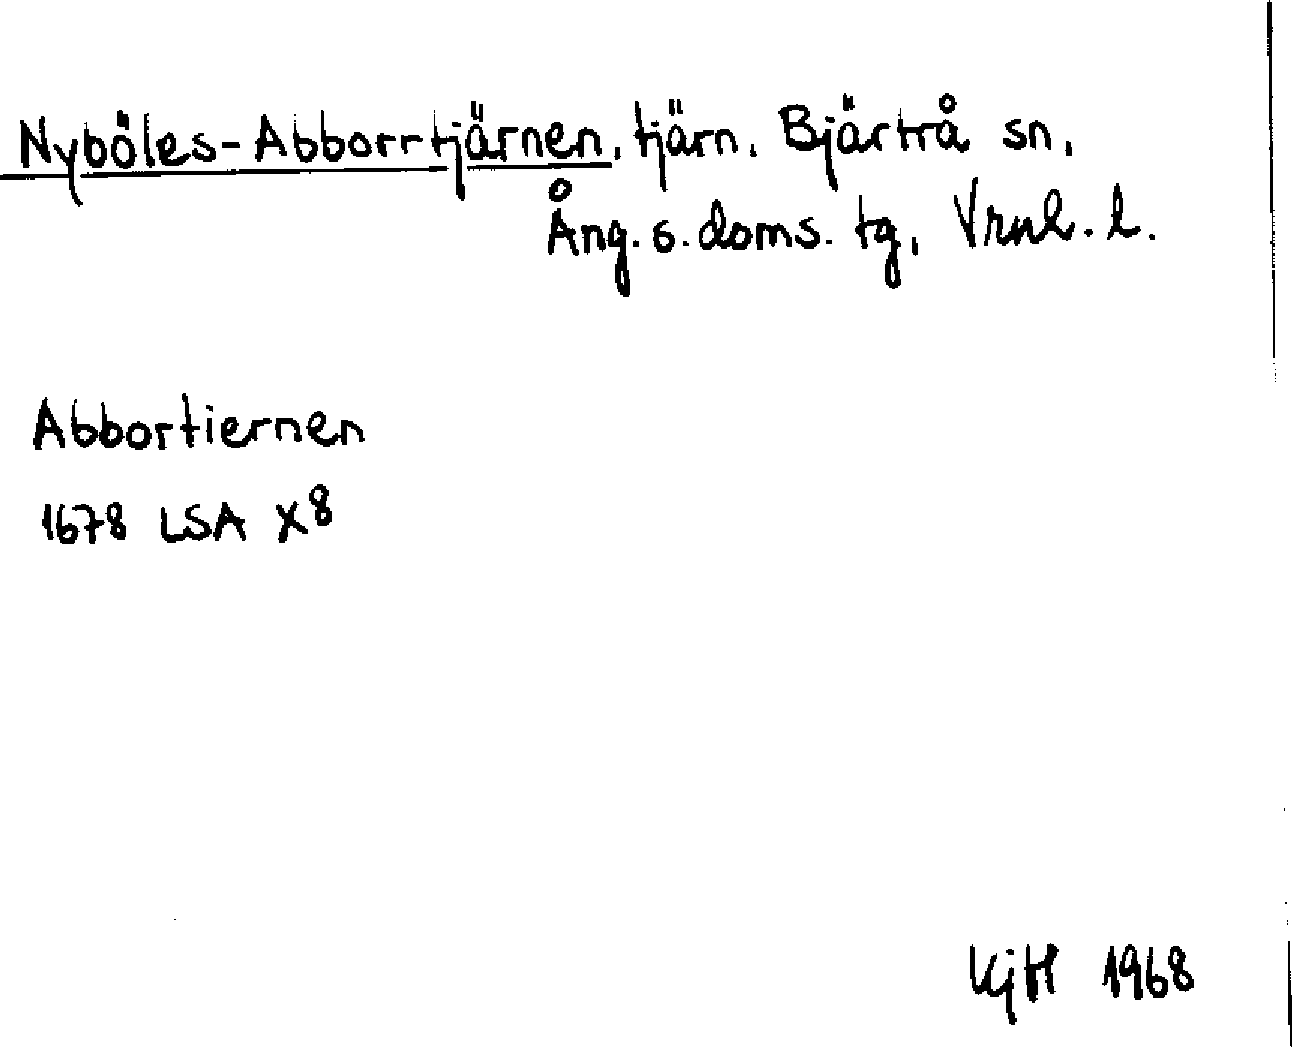 Nyböles-Abborrtjärnen, tjärn. Bjärtrå sn,
Ång. s. doms. tg, Vrnl. l.
Abbortiernen
1678 LSA X8
KjH 1968